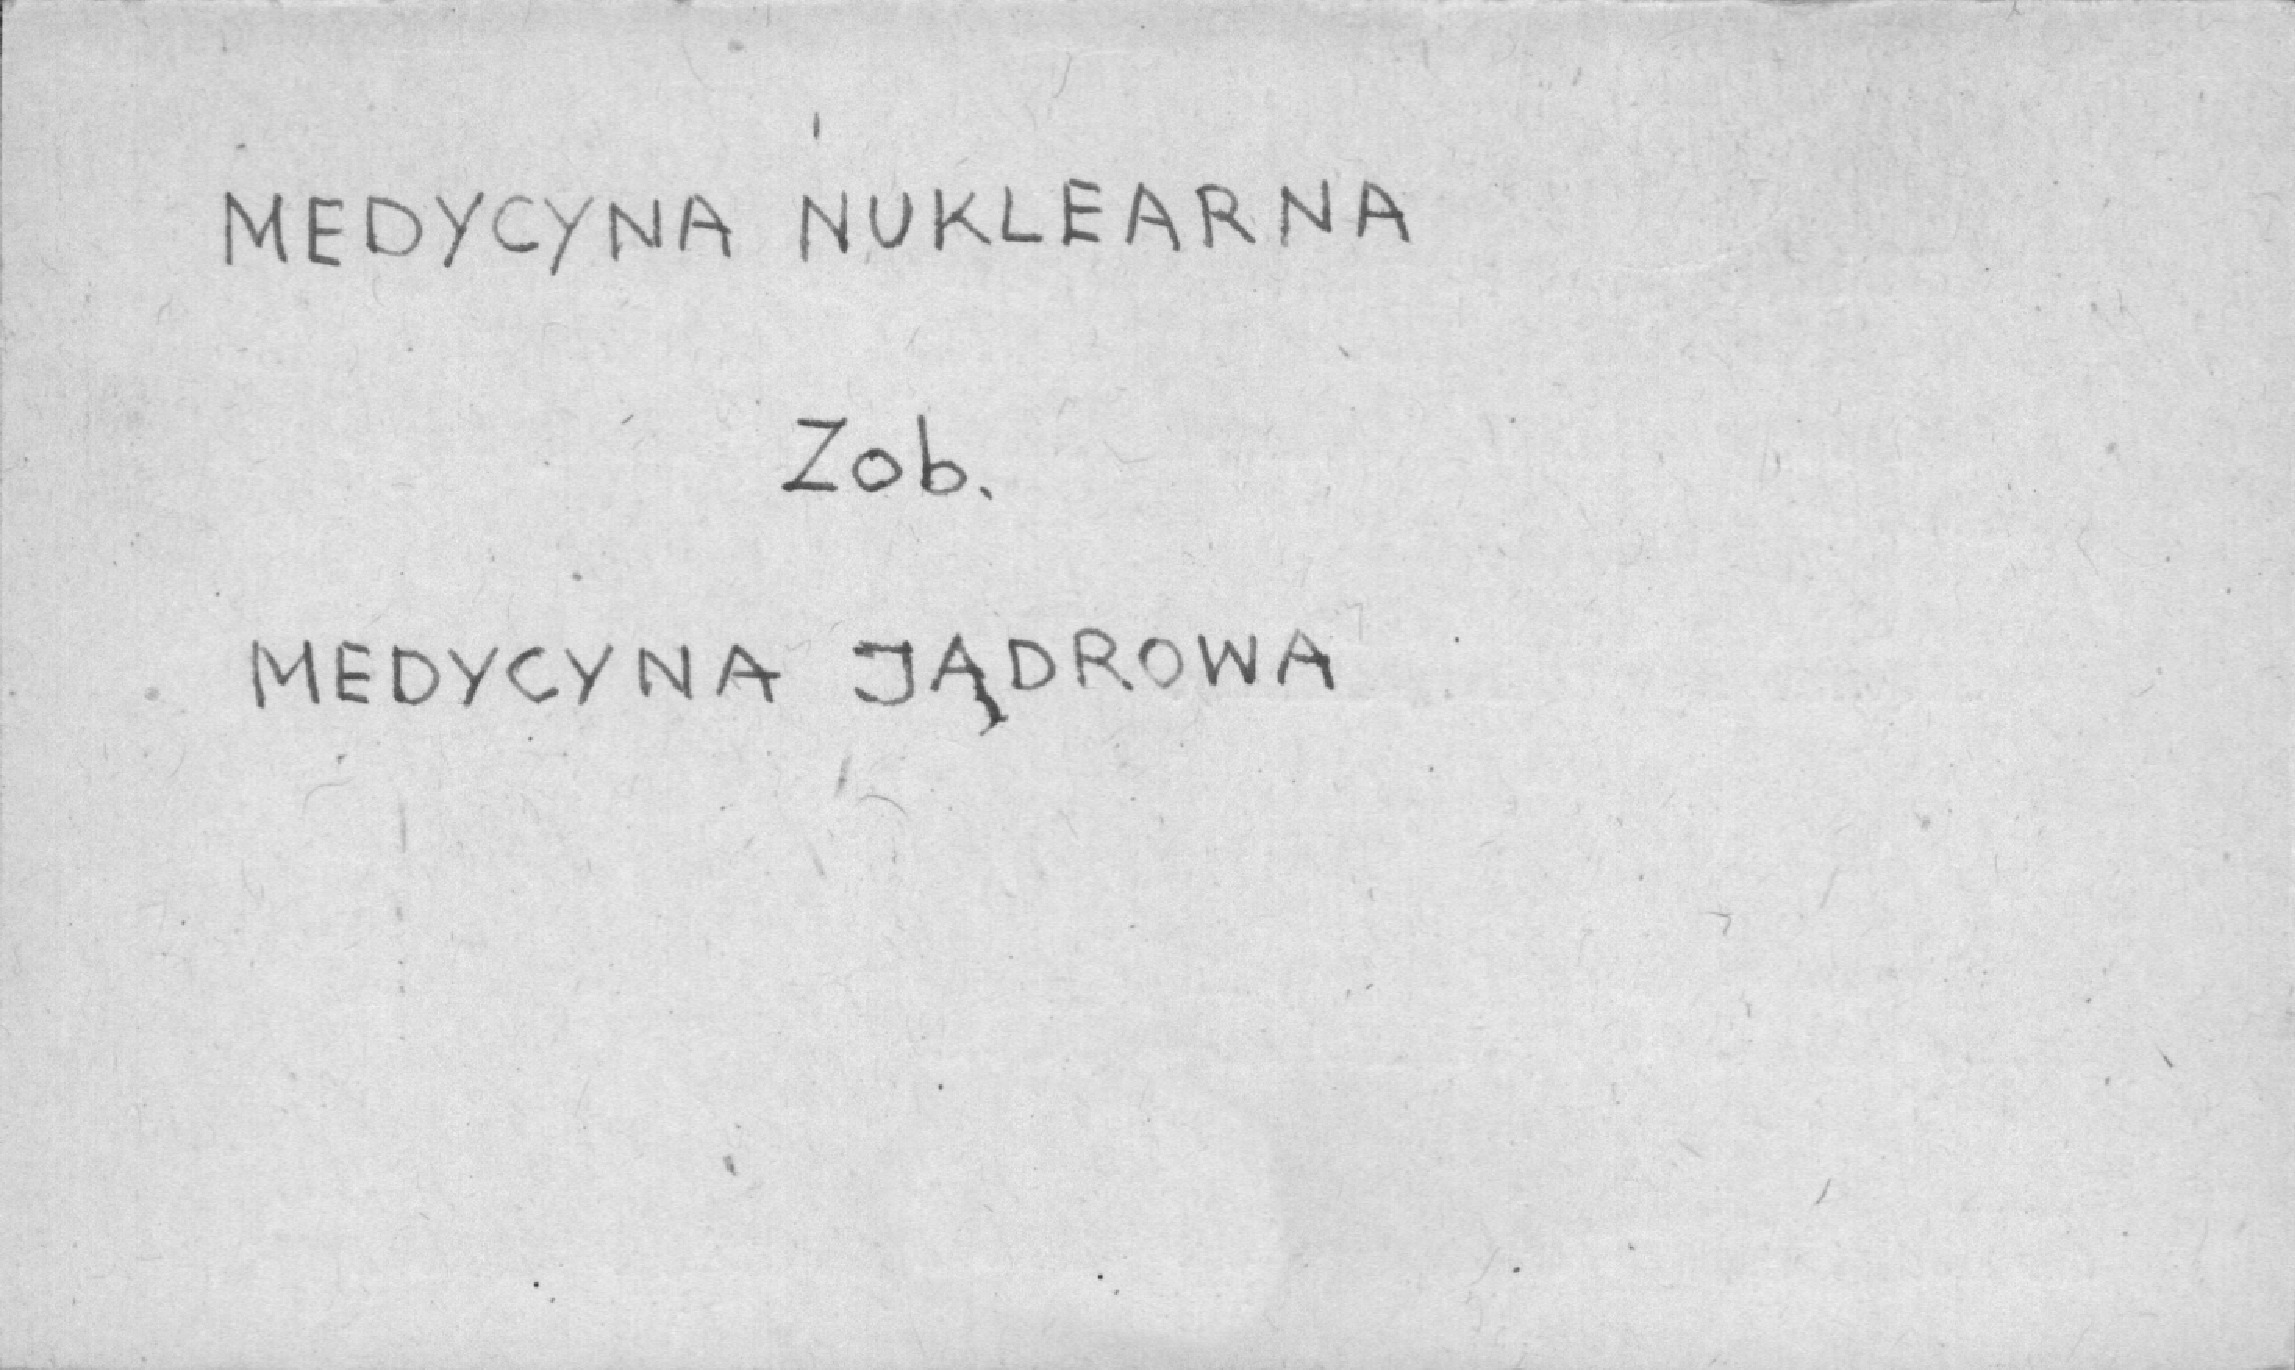 MEDYCYNA NUKLEARNA
Zob.
MEDYCYNA JĄDROWA